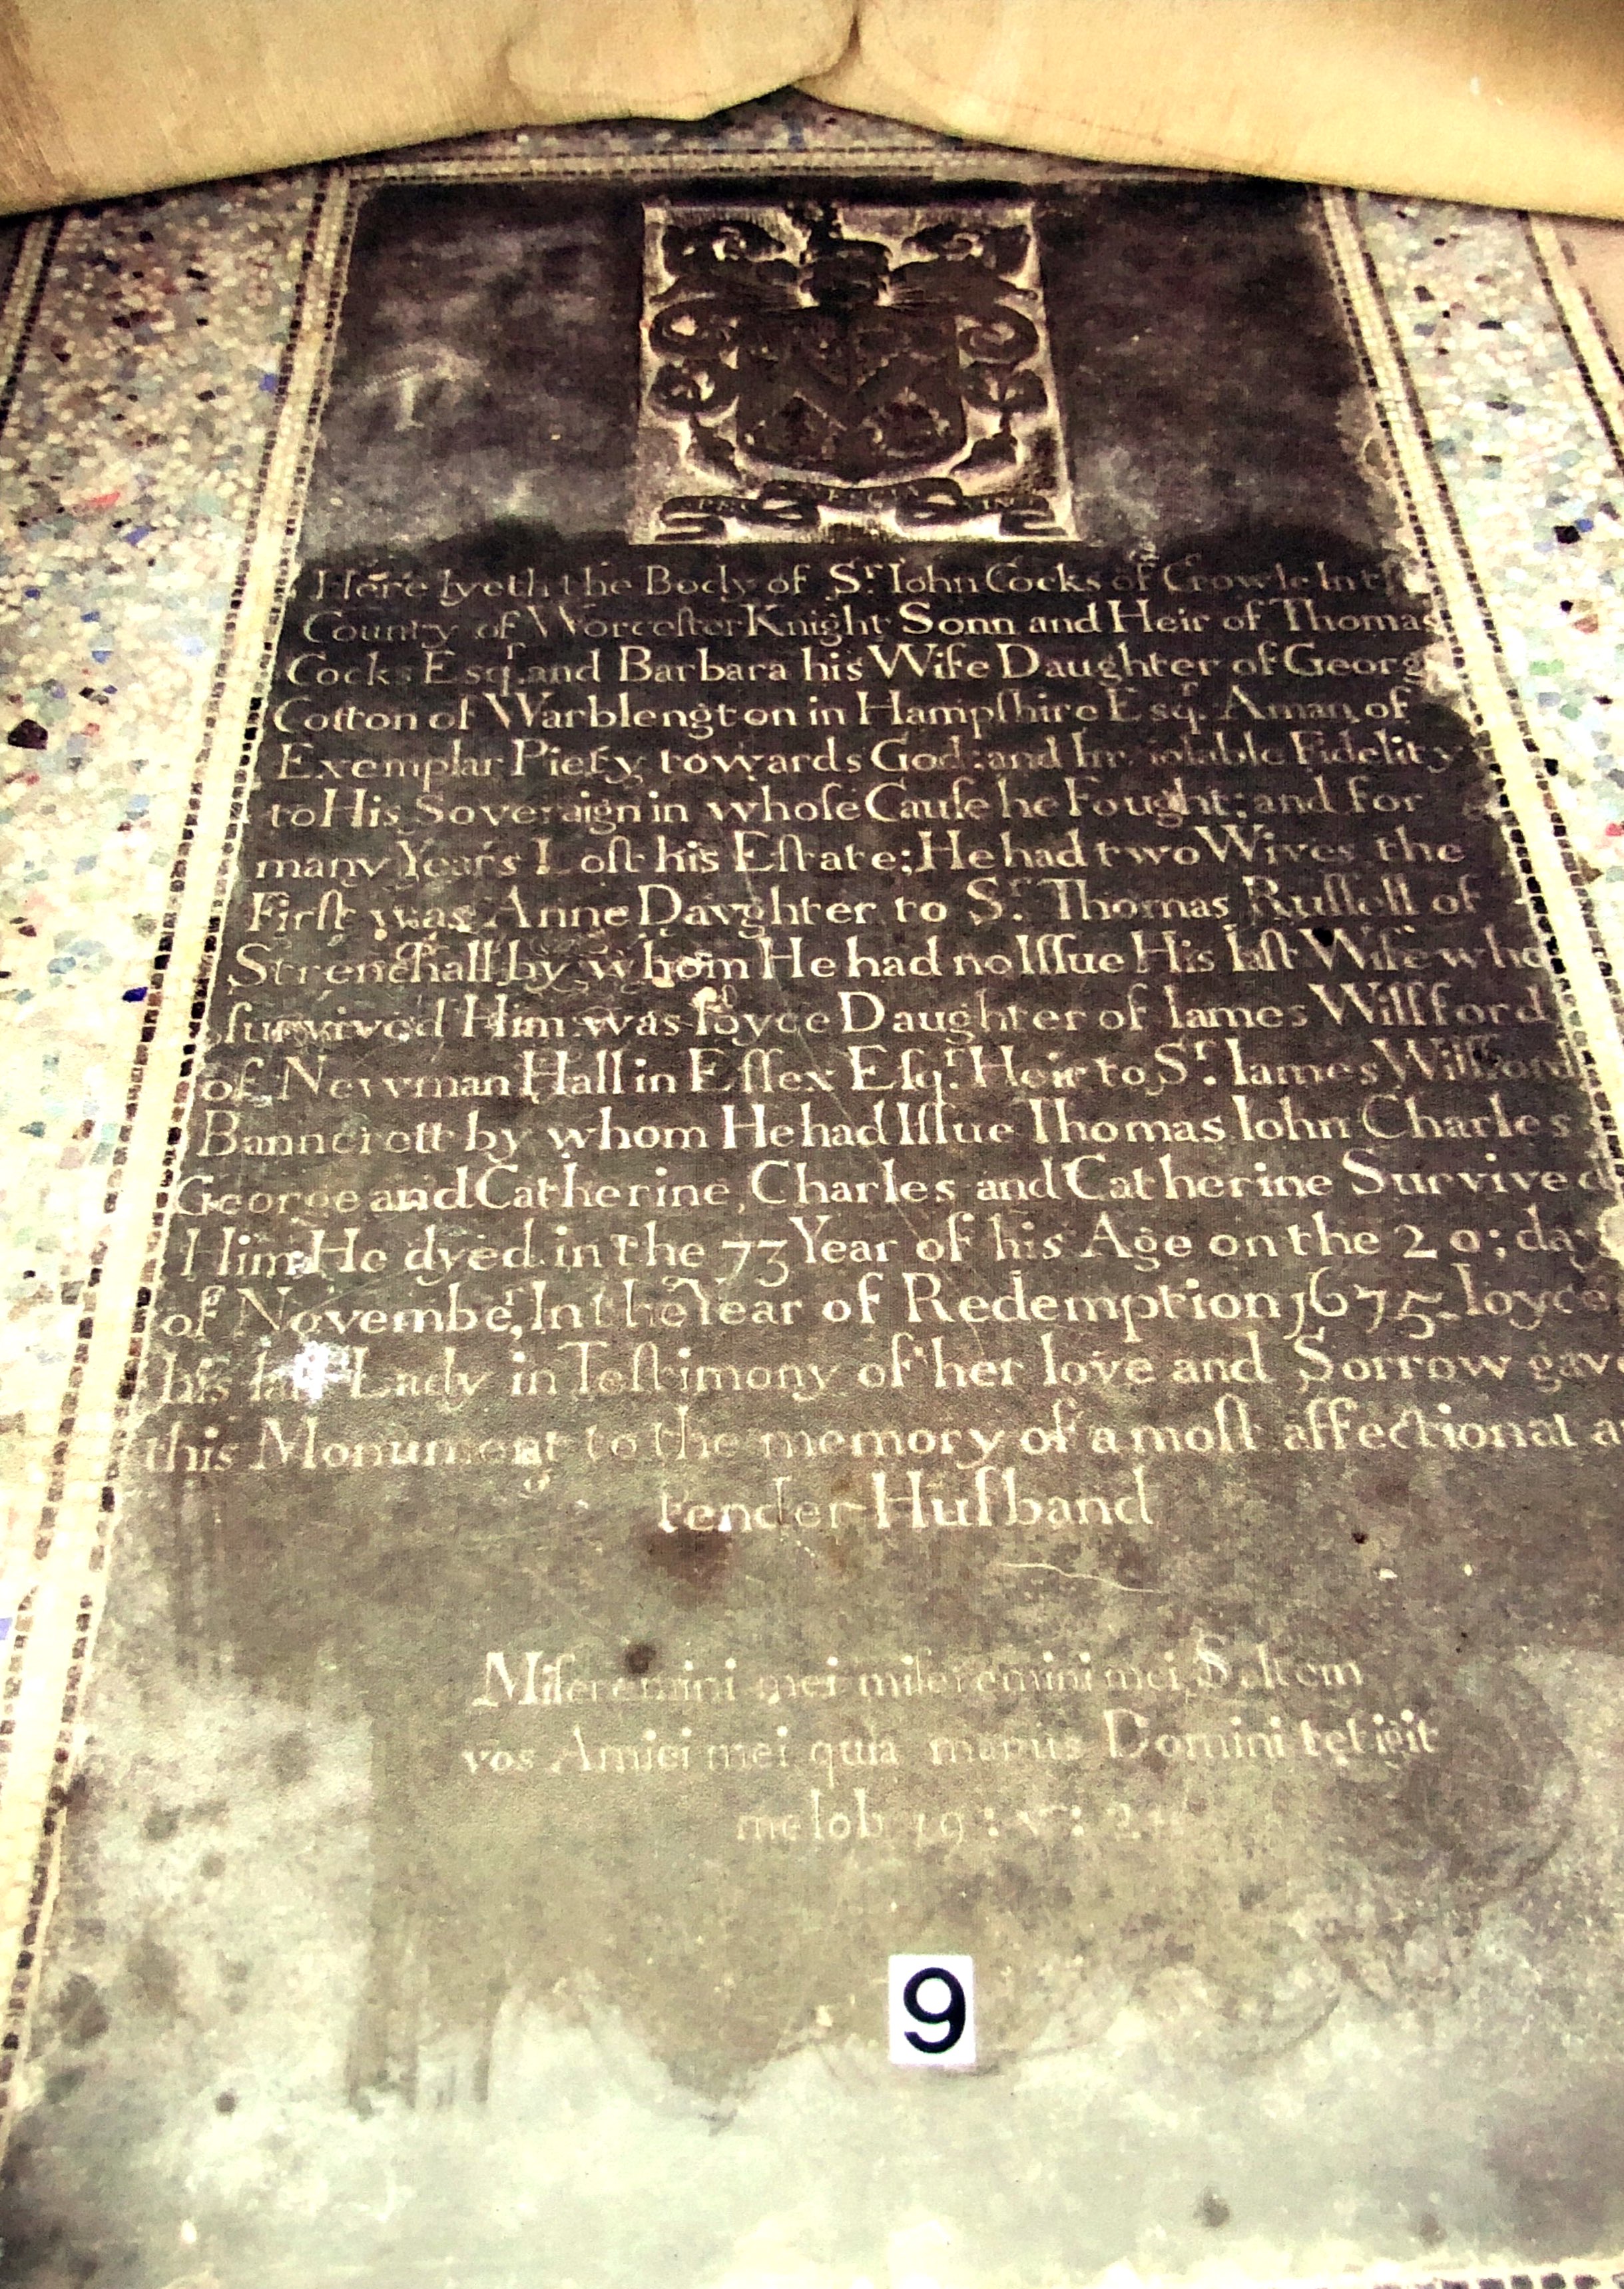 Here lyeth the Body of Sr. Iohn Cocks of Crowle In
County of Worceſter Knight Sonn and Heir of Thomas
Cocks Esqr. and Barbara his Wife Daughter of Georg
Cotton of Warblengton in Hampſhire Esqr. A man of
Exemplar Piety towards God: and Fidelity
to His Soveraign in whoſe Cauſe he Fought; and For
many Years Loſt his Eſtate; He had two Wives the
Firſt was Anne Davghter to Sr. Thomas Ruſſell of
Strenchall by whom He had no Iſſue His laſt Wife who
ſurvived Him was Ioyce Daughter of Iames Willſford
of Newman Hall in Eſſex Eſqr. Heir to Sr. Iames Willſford
Bannerett by whom He had Iſſue Thomas Iohn Charles
George and Catherine, Charles and Catherine Survived
Him He dyed in the 73 Year of his Age on the 20: day
of November, In the Year of Redemption 1675. Ioyce
his Lady in Teſtimony of her love and Sorrow gav
this Monument to the memory of a moſt affectionat
tender Huſband
Miſeremini mei miſeremini mei, Saltem
vos Amici mei quia manus Domini tetigit
me Iob 19: v: 21
9